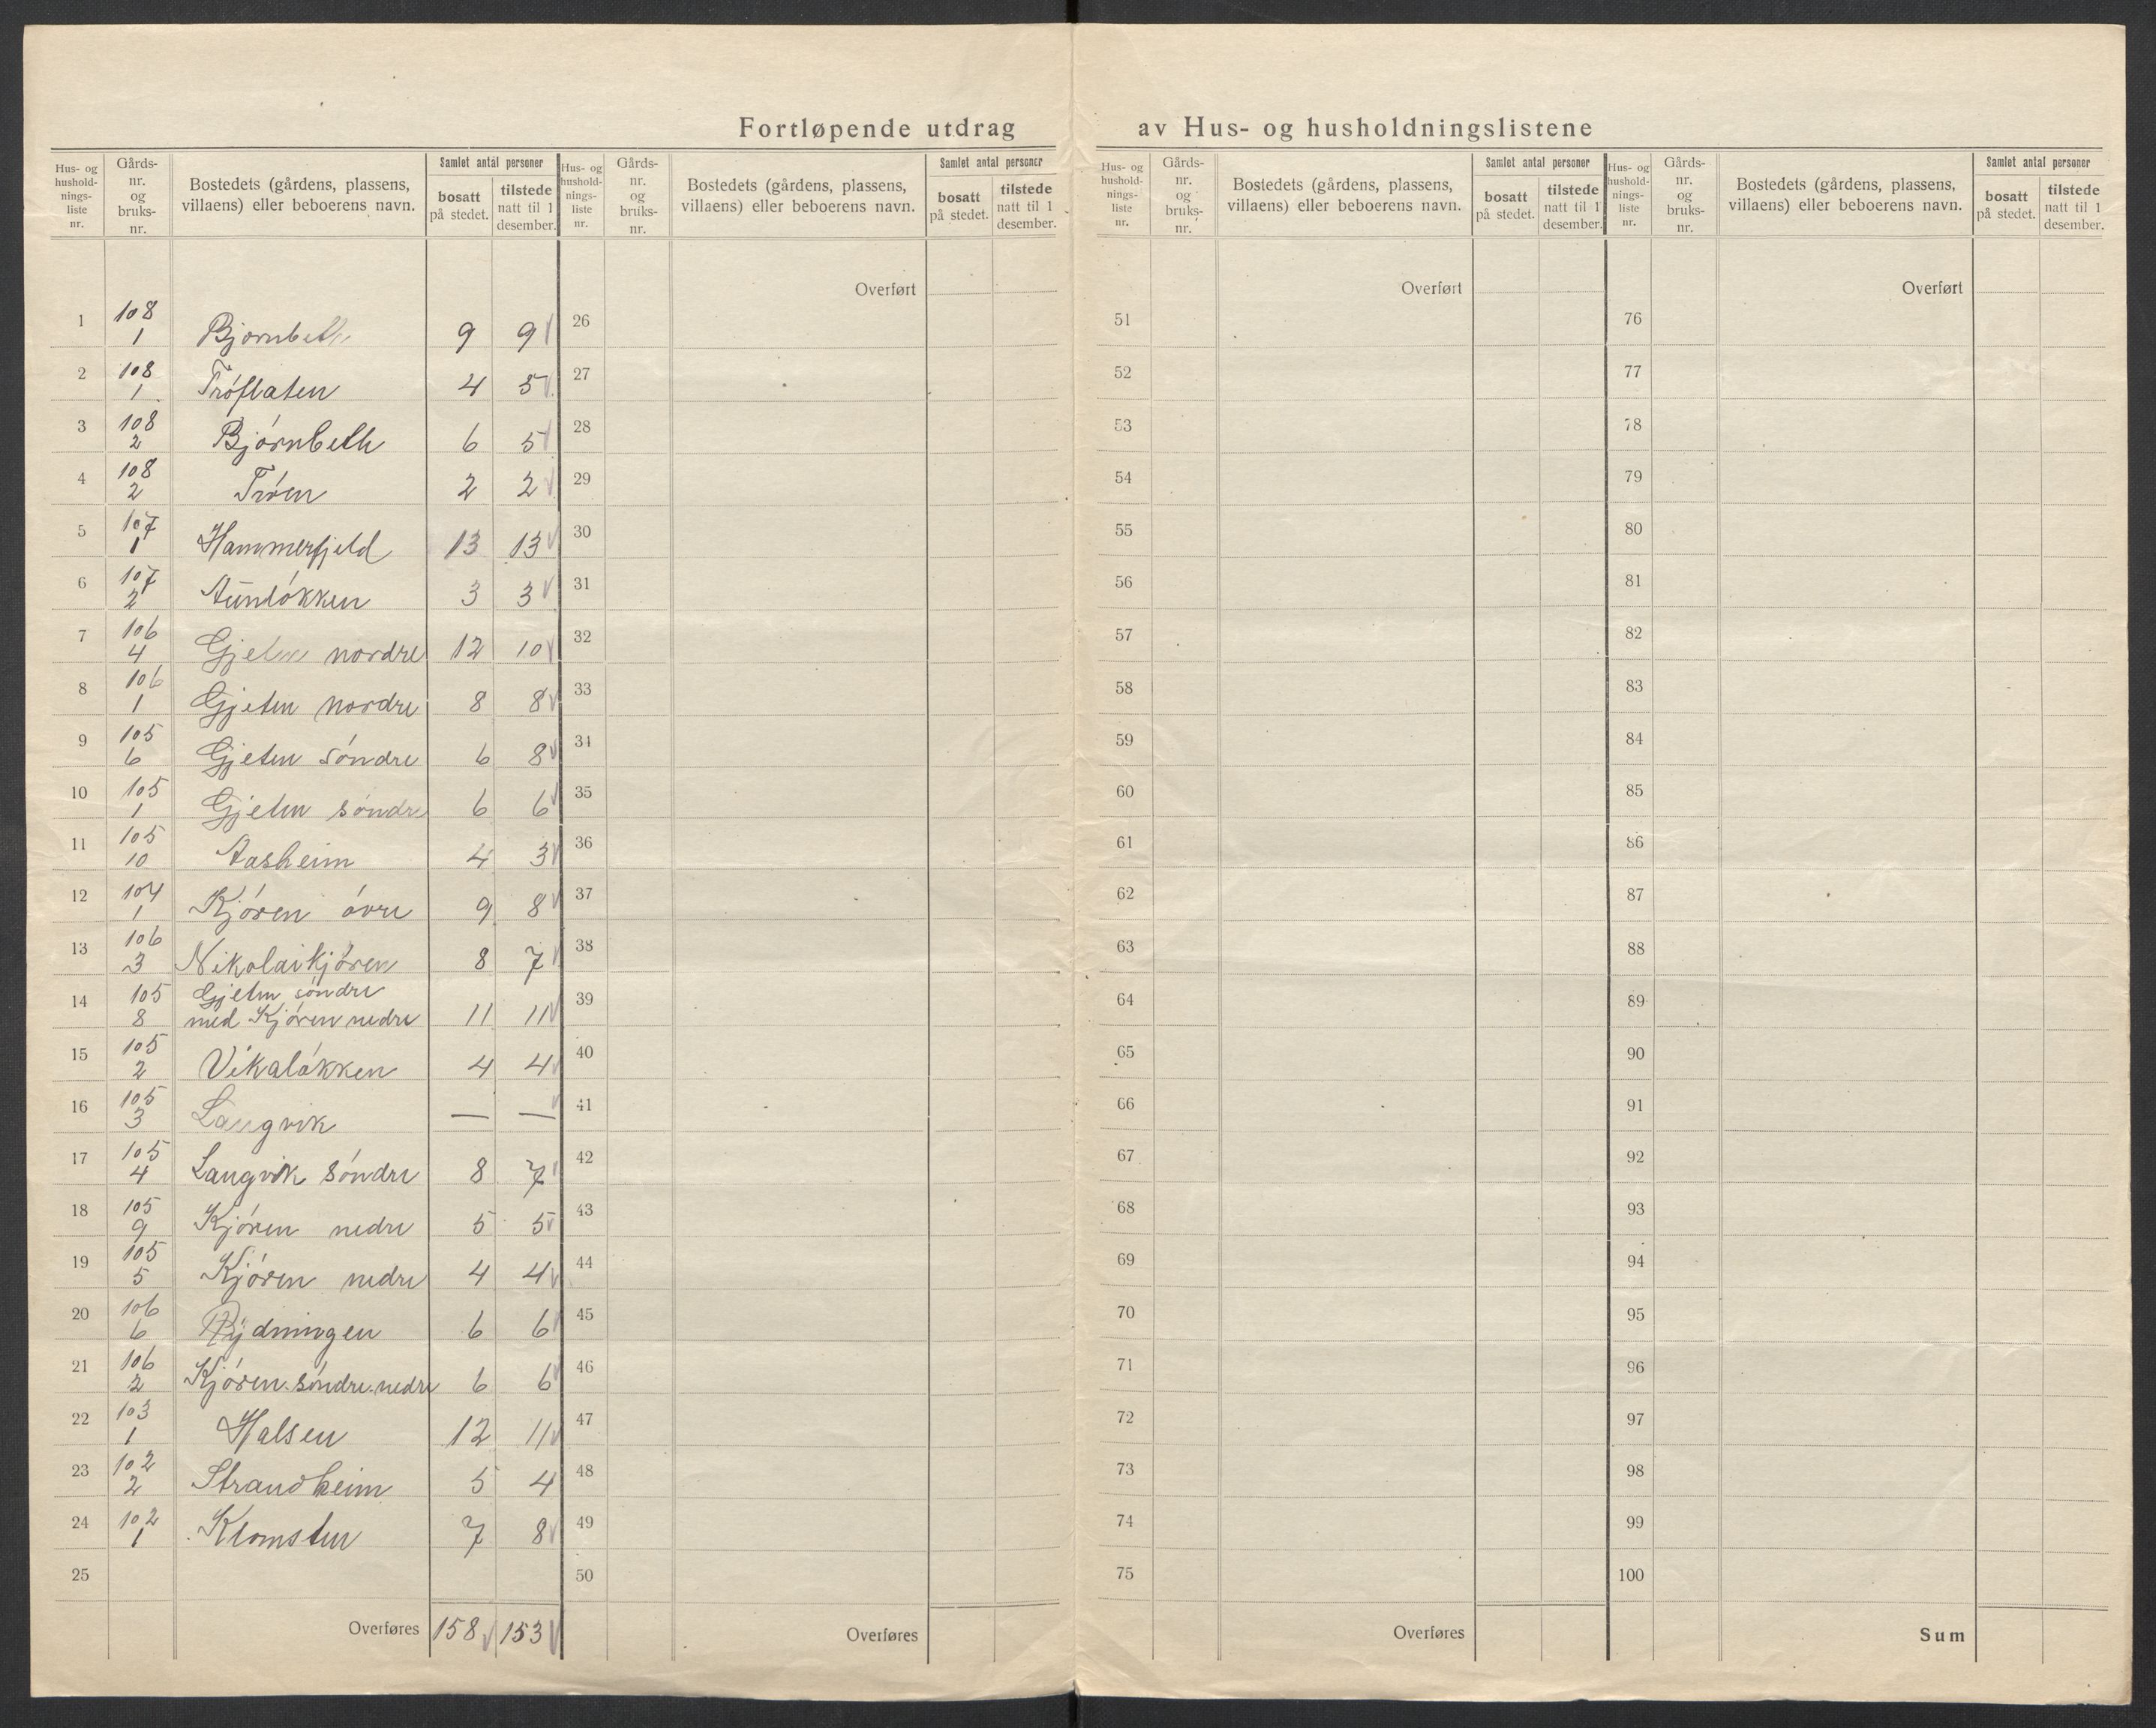 Fortløpende utdrag av Hus- og husholdningslistene
Hus- og husholdnings- liste nr. | Gårds- nr. og bruks- nr. | Bostedets (gårdens, plassens, villaens) eller beboerens navn. | Samlet antal personer | bosatt på stedet. | tilstede natt til 1 desember.
Hus- og husholdnings- liste nr. | Gårds- nr. og bruks- nr. | Bostedets (gårdens, plassens, villaens) eller beboerens navn. | Samlet antal personer | bosatt på stedet. | tilstede natt til 1 desember.
Hus- og husholdnings- liste nr. | Gårds- nr. og bruks- nr. | Bostedets (gårdens, plassens, villaens) eller beboerens navn. | Samlet antal personer | bosatt på stedet. | tilstede natt til 1 desember.
Hus- og husholdnings- liste nr. | Gårds- nr. og bruks- nr. | Bostedets (gårdens, plassens, villaens) eller beboerens navn. | Samlet antal personer | bosatt på stedet. | tilstede natt til 1 desember.
1 108/1 Bjørnbeth 9 9
2 108/1 Trøflaten 4 5
3 108/2 Bjørnbeth 6 5
4 108/2 Trøen 2 2
5 107/1 Hammerfjeld 13 13
6 107/2 Aunløkken 3 3
7 106/4 Gjeten nordre 12 10
8 106/1 Gjeten nordre 8 8
9 105/6 Gjeten søndre 6 8
10 105/1 Gjeten søndre 6 6
11 105/10 Aasheim 4 3
12 104/1 Kjøren øvre 9 8
13 106/3 Nikolaikjøren 8 7
14 105/8 Gjeten søndre
med Kjøren nedre 11 11
15 105/2 Vikaløkken 4 4
16 105/3 Langvik — —
17 105/4 Langvik søndre 8 7
18 105/9 Kjøren nedre 5 5
19 105/5 Kjøren nedre 4 4
20 106/6 Rydningen 6 6
21 106/2 Kjøren søndre nedre 6 6
22 103/1 Halsen 12 11
23 102/2 Strandheim 5 4
24 102/1 Klomsten 7 8
25
Overføres 158 153
Overført
26
27
28
29
30
31
32
33
34
35
36
37
38
39
40
41
42
43
44
45
46
47
48
49
50
Overføres
Overført
51
52
53
54
55
56
57
58
59
60
61
62
63
64
65
66
67
68
69
70
71
72
73
74
75
Overføres
Overført
76
77
78
79
80
81
82
83
84
85
86
87
88
89
90
91
92
93
94
95
96
97
98
99
100
Sum